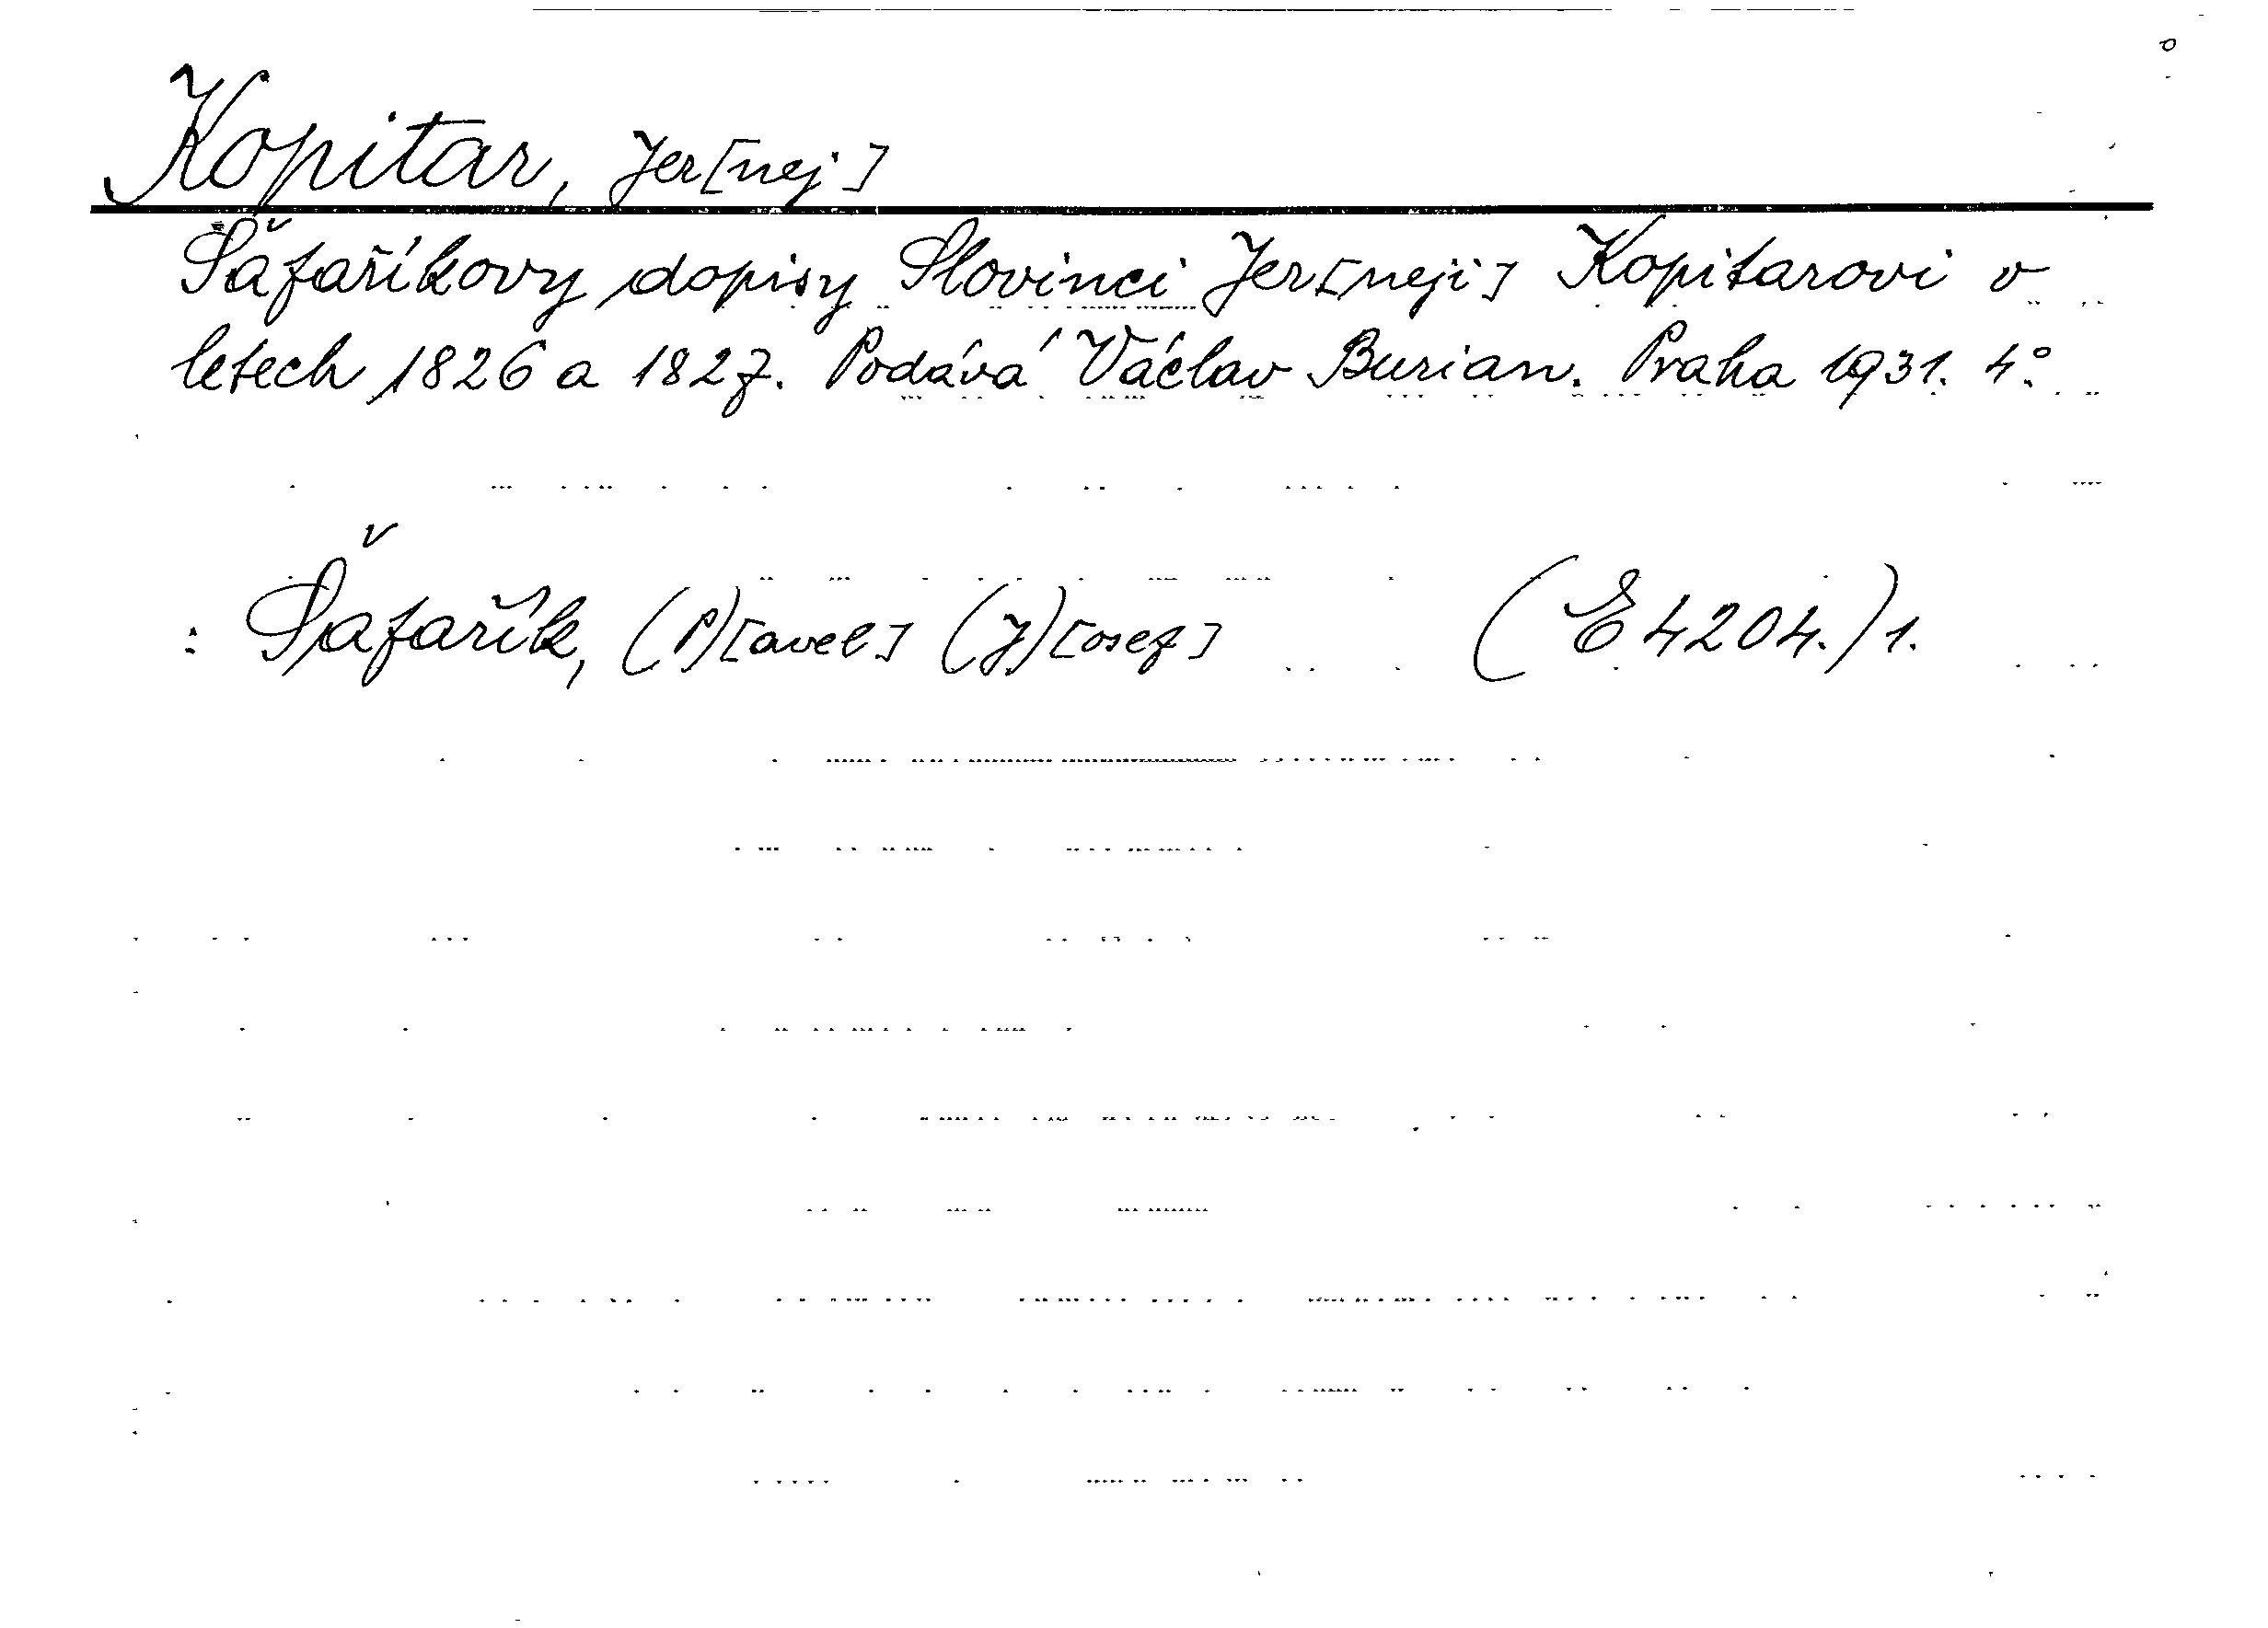 Kopitar, Jer[nej]
Šafaříkovy dopisy Slovinci Jer[neji] Kopitarovi v
letech 1826 a 1827. Podává Václav Burian. Praha 1931. 4°.
: Šafařík, (P)[avel] (J)[osef] (E 4204.) 1.